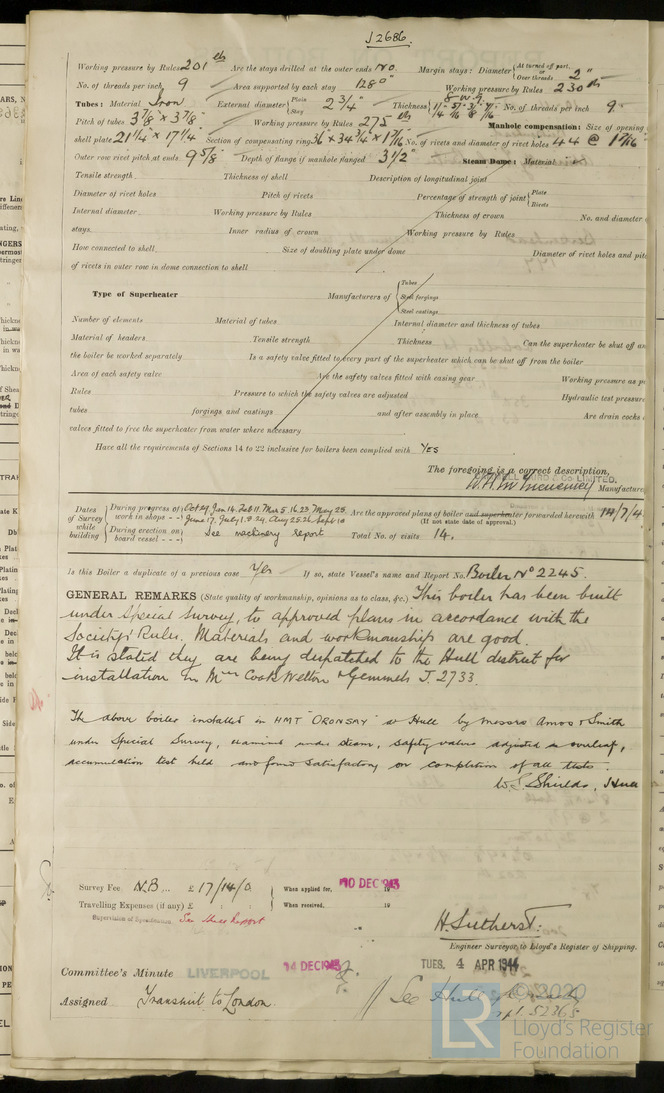 J 2686.
Working pressure by Rules 201 lbs Are the stays drilled at the outer ends No. Margin stays: Diameter { At turned off part, or Over threads 2"
No. of threads per inch 9 Area supported by each stay 128□" Working pressure by Rules 230 lbs
Tubes: Material Iron External diameter { Plain Stay 2 3/4" Thickness { 8 W.G. No. of threads per inch 9.
Pitch of tubes 3 7/8" x 3 7/8" Working pressure by Rules 275 lbs Manhole compensation: Size of opening
shell plate 21 1/4" x 17 1/4" Section of compensating ring No. of rivets and diameter of rivet holes 44 @ 1 9/16"
Outer row rivet pitch at ends 9 5/8" Depth of flange if manhole flanged 3 1/2" Steam Dome: Material
Tensile strength Thickness of shell Description of longitudinal joint
Diameter of rivet holes Pitch of rivets Percentage of strength of joint { Plate Rivets
Internal diameter Working pressure by Rules Thickness of crown No. and diameter
stays. Inner radius of crown Working pressure by Rules
How connected to shell Size of doubling plate under dome Diameter of rivet holes and
of rivets in outer row in dome connection to shell
Type of Superheater Manufacturers of { Tubes Steel forgings Steel castings
Number of elements Material of tubes Internal diameter and thickness of tubes
Material of headers Tensile strength Thickness Can the superheater be shut off
the boiler be worked separately Is a safety valve fitted to every part of the superheater which can be shut off from the boiler
Area of each safety valve Are the safety valves fitted with easing gear Working pressure as
Rules Pressure to which the safety valves are adjusted Hydraulic test pressure
tubes forgings and castings and after assembly in place Are drain cocks
valves fitted to free the superheater from water where necessary
Have all the requirements of Sections 14 to 22 inclusive for boilers been complied with Yes
The foregoing is a correct description,
LIMITED.
Dates of Survey while building { During progress of work in shops - - } Oct 29, Jan 14, Feb 11, Mar 5, 16, 23, May 25
June 17, July 1, 9, 24, Aug 25, 26, Sept 10 Are the approved plans of boiler and superheater forwarded herewith
(If not state date of approval.)
{ During erection on board vessel - - - } See machinery report Total No. of visits 14.
Is this Boiler a duplicate of a previous case Yes If so, state Vessel's name and Report No. Boiler No 2245.
GENERAL REMARKS (State quality of workmanship, opinions as to class, &c.) This boiler has been built
under Special Survey, to approved plans in accordance with the
Society's Rules. Materials and workmanship are good.
It is stated they are being dispatched to the Hull district for
installation in Mrss Cook Welton & Gemmels J. 2733.
The above boiler installed in HMT "ORONSAY" at Hull by Messrs Amos & Smith
under Special Survey, examined under steam, safety valves adjusted as overleaf,
accumulation test held and found satisfactory on completion of all tests.
W. S. Shields, Hull
Survey Fee N.B... £ 17/14/0 When applied for, 10 DEC 1943
Travelling Expenses (if any) £ : : When received, 19
See Hull Report
H. Sutherst.
Engineer Surveyor to Lloyd's Register of Shipping.
Committee's Minute LIVERPOOL 14 DEC 1943 TUES. 4 APR 1944
Assigned Transmit to London. See Hull
© 2020
LR
Lloyd's Register
Foundation